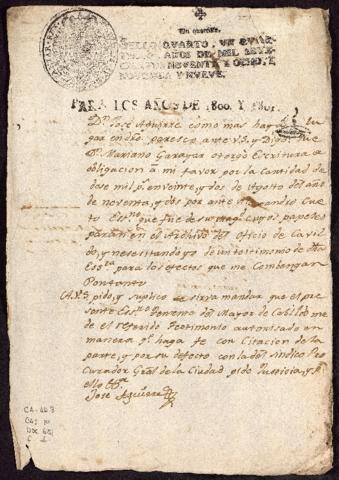 Un quartillo.
SELLO QUARTO, VN QVAR-
TILLO, AÑOS DE MIL SETE-
CIENTOS NOVENTA Y OCHO, Y
NOVENTA Y NUEVE.
PARA LOS AÑOS DE 1800. Y 1801.
Dn. José Aguirre como mas haya lu
gar en dro. paresco ante VS. y Digo: Que
Dn. Mariano Garay otorgó Escritura a
obligacion á mi favor por la cantidad de
dose mil ps. en veinte y dos de Agosto del año
de noventa, y dos por ante Alexandro Cue
to Essno. que fué de cuyos papeles
paran en el Archivo del Oficio de Cavil
do, y nesesitando yo de un testimonio de dha
Essra. para los efectos que me Combengan
Portanto
A.V.S. pido, y suplico se sirva mandar que el pre
sente Essno. Theniente del Mayor de Cabildo me
de el referido testimonio autorisado en
manera qe. haga fe con Citacion de la
parte, y por su defecto con la del Sindico Pro
Curador Gral de la Ciudad pido Justicia y
ello &a.
José Aguirre
CA-